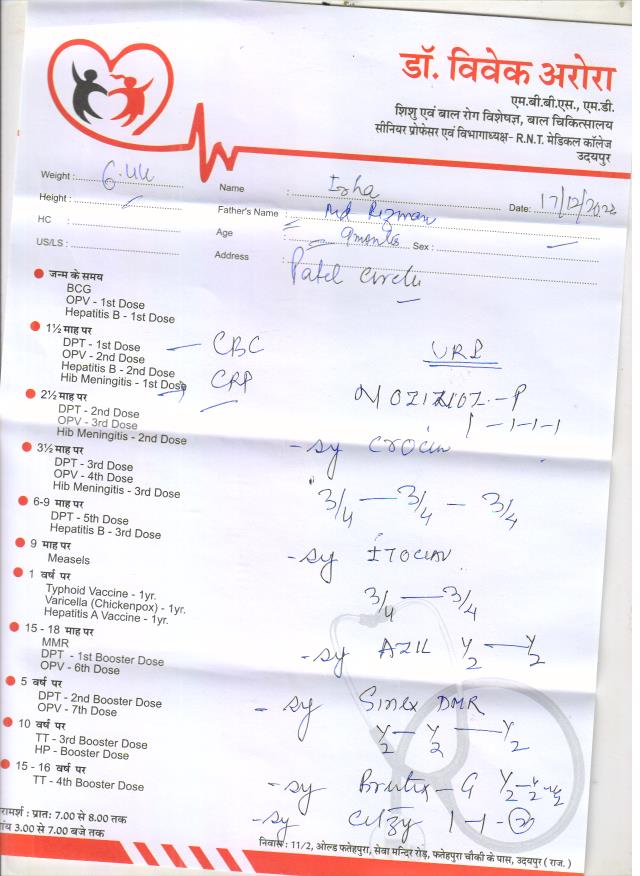 डॉ. विवेक अरोरा
एम.बी.बी.एस., एम.डी.
शिशु एवं बाल रोग विशेषज्ञ, बाल चिकित्सालय
सीनियर प्रोफेसर एवं विभागाध्यक्ष- R.N.T. मेडिकल कॉलेज
उदयपुर
Weight : Name : Isha Date: 17/12/2022
Height : Father's Name : Md Rizwan
HC : Age : 9months Sex :
US/LS : Address : Patel Circle
जन्म के समय
BCG
OPV - 1st Dose
Hepatitis B - 1st Dose
1½ माह पर
DPT - 1st Dose CBC
OPV - 2nd Dose URI
Hepatitis B - 2nd Dose
Hib Meningitis - 1st Dose CRP
2½ माह पर
DPT - 2nd Dose
OPV - 3rd Dose 1-1-1-1
Hib Meningitis - 2nd Dose
- sy Crocin
3½ माह पर
DPT - 3rd Dose
OPV - 4th Dose
Hib Meningitis - 3rd Dose
3/4 — 3/4 - 3/4
6-9 माह पर
DPT - 5th Dose
Hepatitis B - 3rd Dose
9 माह पर
Measels
- sy ITOCLAV
1 वर्ष पर
Typhoid Vaccine - 1yr.
Varicella (Chickenpox) - 1yr.
Hepatitis A Vaccine - 1yr.
3/4 — 3/4
15 - 18 माह पर
MMR
DPT - 1st Booster Dose
OPV - 6th Dose
- sy AZIL Y/2 — Y/2
5 वर्ष पर
DPT - 2nd Booster Dose
OPV - 7th Dose
- sy Sinex DMR
Y/2 - Y/2 — Y/2
10 वर्ष पर
TT - 3rd Booster Dose
HP - Booster Dose
15 - 16 वर्ष पर
TT - 4th Booster Dose
- sy Y/2 - Y/2 - Y/2
- sy 1-1-
परामर्श : प्रातः 7.00 से 8.00 तक
सायं 3.00 से 7.00 बजे तक
निवास : 11/2, ओल्ड फतेहपुरा, सेवा मन्दिर रोड़, फतेहपुरा चौकी के पास, उदयपुर ( राज. )